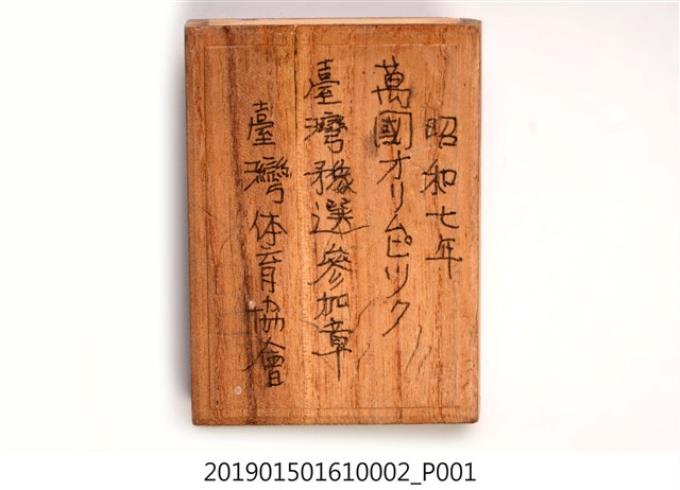 昭和七年
萬國オリムピック
臺灣豫選參加章
臺灣体育協會
201901501610002_P001